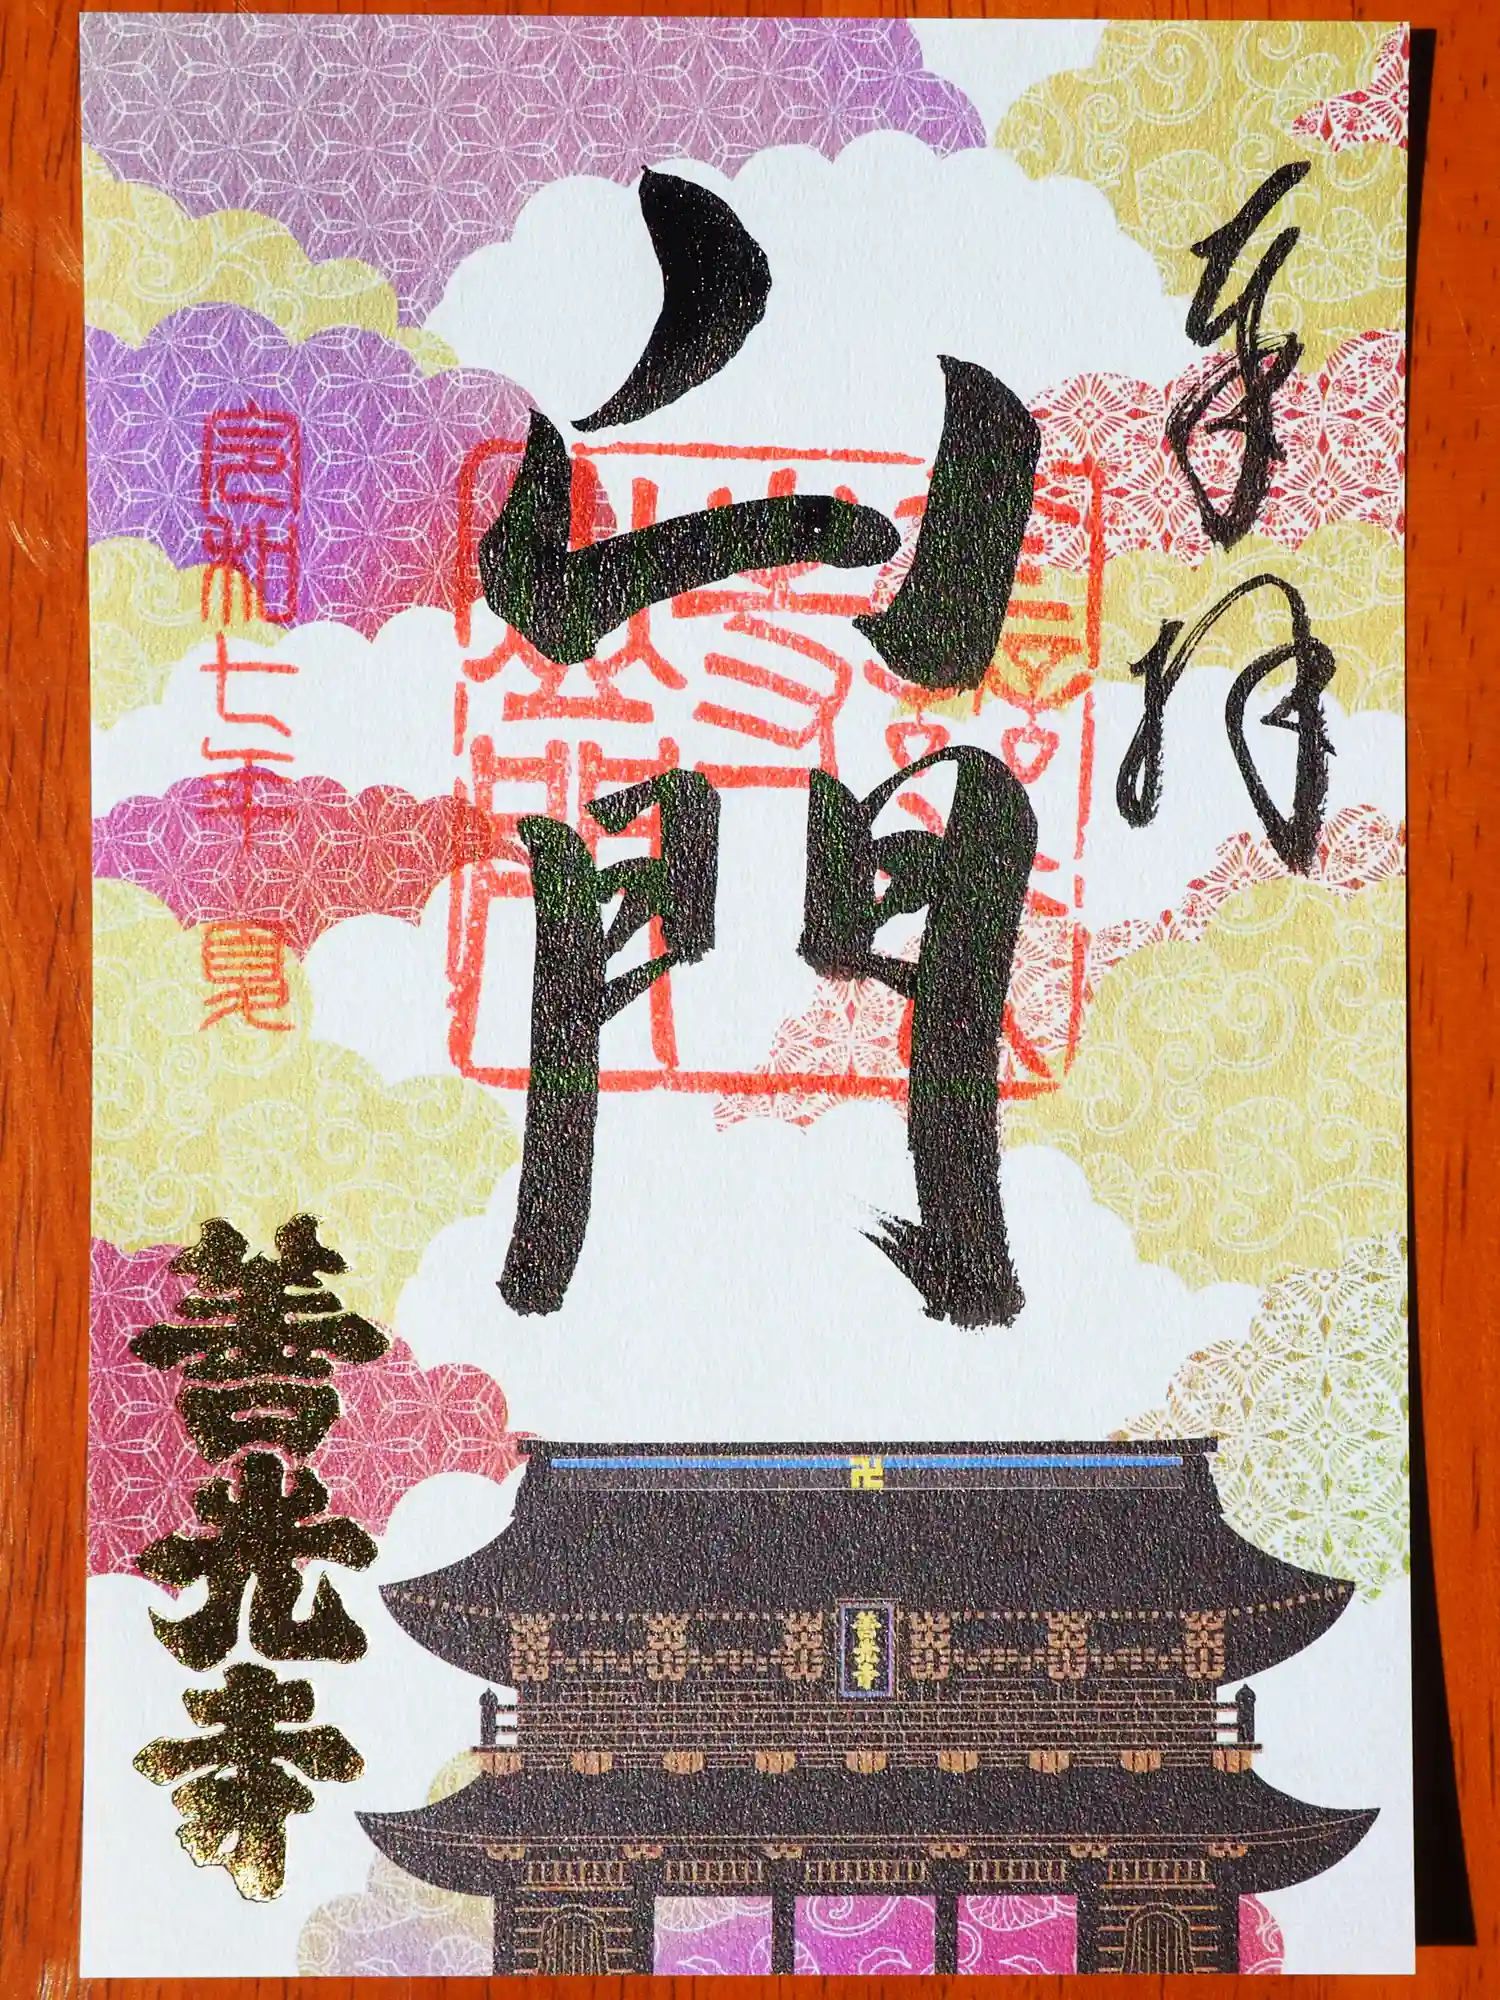 奉拝
山門
令和七年夏
善光寺
卍
善光寺